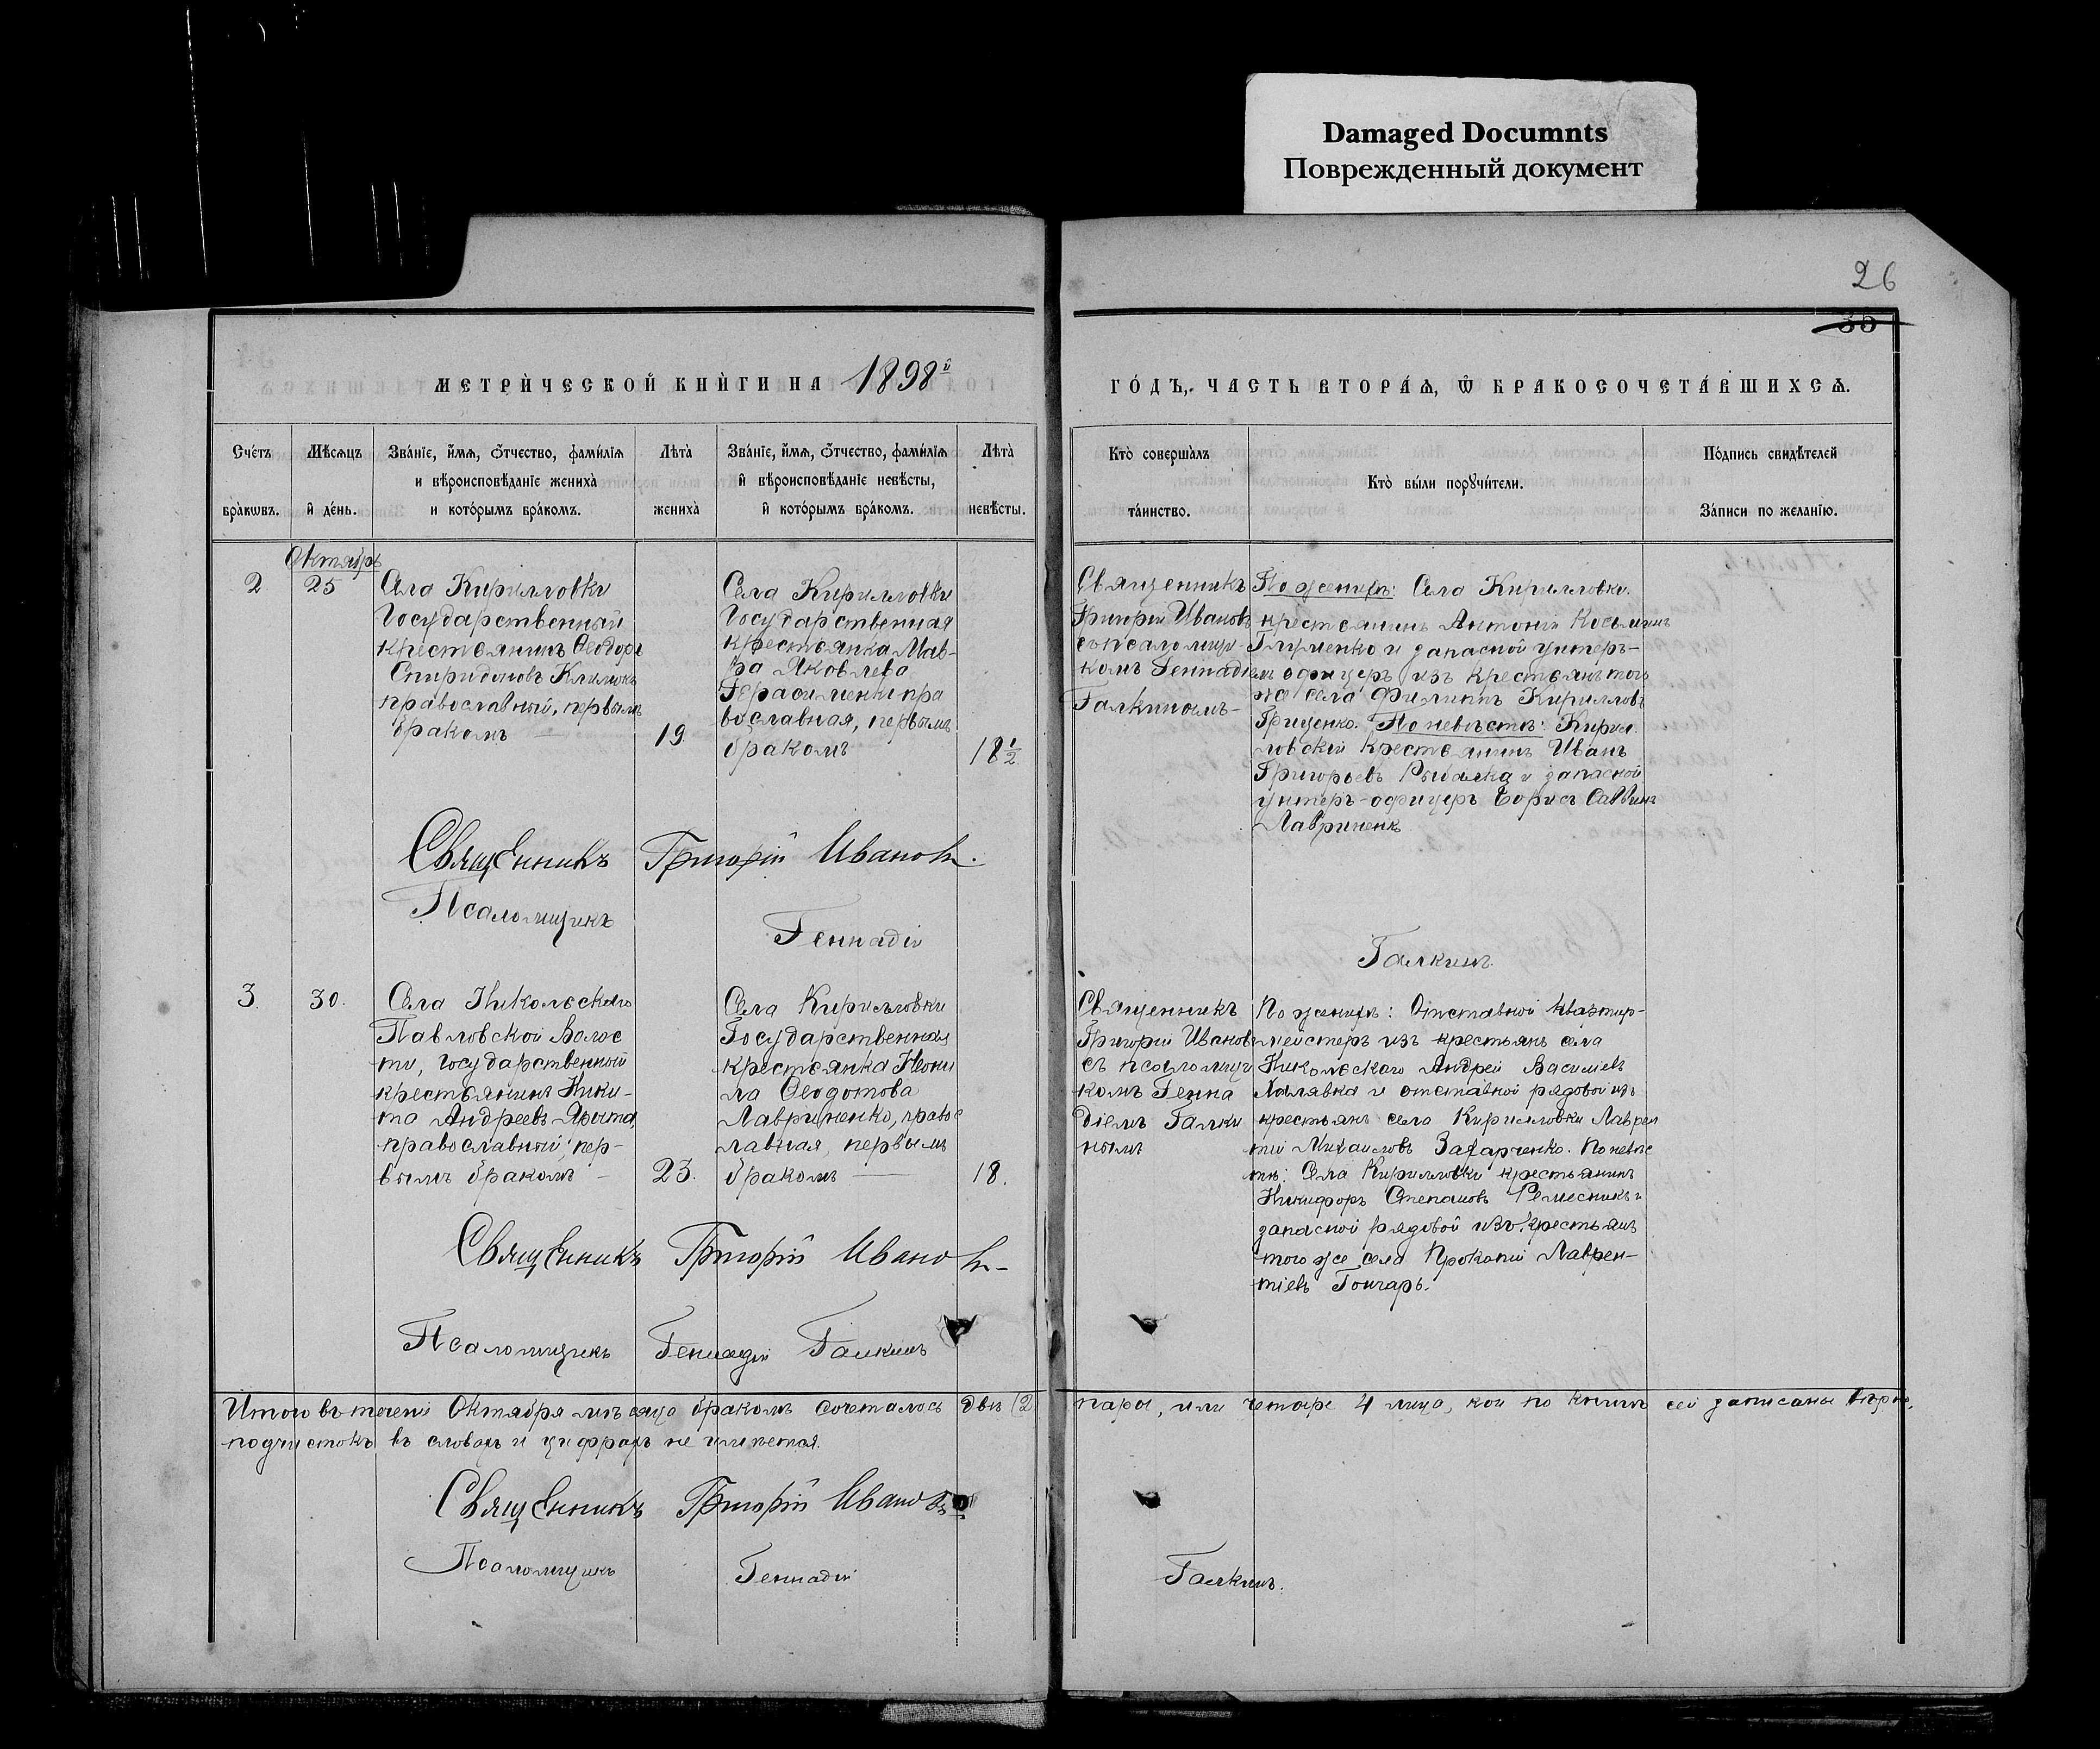 Damaged Documnts
Поврежденный документ
26
35
МЕТРИ́ЧЕСКОЙ КНИ́ГИ НА 1898й
ГО́ДЪ, ЧАСТЬ ВТОРА́Ѧ, Ѿ БРАКОСОЧЕТА́ВШИХСѦ.
Сче́тъ
бра́кѡвъ.
Мѣ́сѧцъ
и҆ де́нь.
Зва́нїе, и҆́мѧ, ѻ҆́тчество, фами́лїѧ
и вѣроисповѣ́данїе жениха̀
и кото́рымъ бра́комъ.
Лѣта̀
жениха̀
Зва́нїе, и҆́мѧ, ѻ҆́тчество, фами́лїѧ
и҆ вѣроисповѣ́данїе невѣ́сты,
и҆ кото́рымъ бра́комъ.
Лѣта̀
невѣ́сты.
Кто̀ соверша́лъ
та́инство.
Кто̀ бы́ли порꙋчи́тели.
По́дпись свидѣ́телей
За́писи по жела́нїю.
Октябрь
2
25
Села Кирилловки
Государственный
крестьянинъ Ѳеодоръ
Спиридоновъ Климокъ
православный, первымъ
бракомъ
19
Села Кирилловки
Государственная
крестьянка Мав-
ра Яковлева
Герасименко пра
вославная, первымъ
бракомъ
18 1/2
Священникъ
Григорій Ивановъ
съ псаломщи-
комъ Геннадіемъ
Галкинымъ
По женихѣ: Села Кирилловки
крестьянинъ Антоній Косьминъ
Глущенко и запасной унтеръ-
офицеръ изъ крестьянъ того
же села Филиппъ Кирилловъ
Гриценко. По невѣстѣ: Кирил
ловскій крестьянинъ Иванъ
Григорьевъ Рыбалка и запасной
унтеръ-офицеръ Борисъ Саввинъ
Лавриненко
Священникъ Григорій Ивановъ.
Псаломщикъ Геннадій Галкинъ.
3.
30.
Села Никольскаго
Павловской Волос
ти, государственный
крестьянинъ Ники-
та Андреевъ
православный, пер-
вымъ бракомъ
23.
Села Кирилловки
Государственная
крестьянка Неони
ла Ѳеодотова
Лавриненко, правос
лавная, первымъ
бракомъ
18.
Священникъ
Григорій Ивановъ
съ псаломщи
комъ Генна
діемъ Галки
нымъ
По женихѣ: Отставной квартир-
мейстеръ изъ крестьянъ села
Никольскаго Андрей Василіевъ
Халявка и отставной рядовой изъ
крестьянъ села Кирилловки Лаврен
тій Михаиловъ Захарченко. По невѣс
тѣ: Села Кирилловки крестьянинъ
Никифоръ Степановъ Ремесникъ и
запасной рядовой изъ крестьянъ
того же села Прокопій Лаврен-
тіевъ Гончаръ.
Священникъ Григорій Ивановъ
Псаломщикъ Геннадій Галкинъ
Итого въ теченіи Октября мѣсяца бракомъ сочеталось двѣ (2) пары, или четыре 4 лица, кои по книгѣ сей записаны вѣрно,
подчистокъ въ словахъ и цифрахъ не имѣется.
Священникъ Григорій Ивановъ
Псаломщикъ Геннадій Галкинъ.